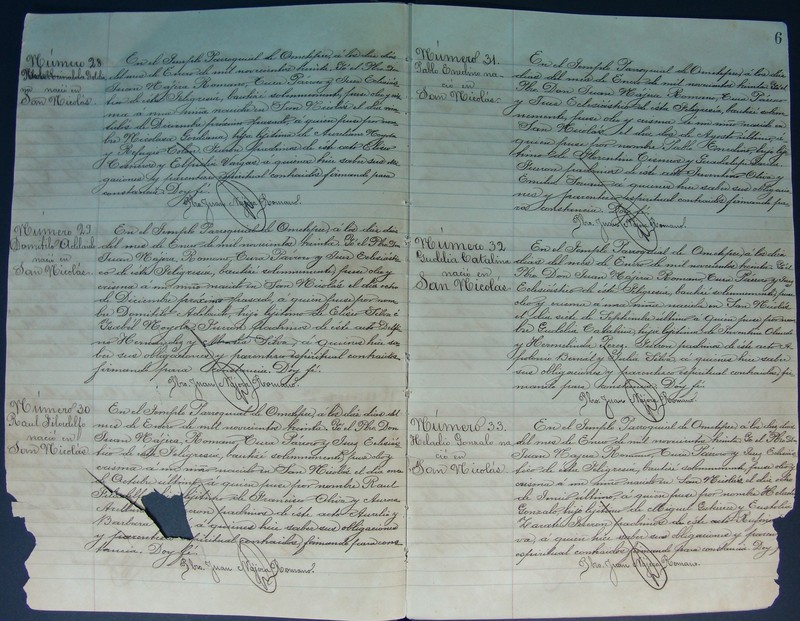 Número 28
nació en
San Nicolás.
En el Templo Parroquial de Ometepec á los diez dias
del mes de Enero de mil novecientos treinta Yo el Pbo. Don
Juan Najera Romano, Cura Párroco y Juez Eclesiás-
tico de ésta Feligresía, bauticé solemnemente, puse oleo y cris-
ma a una niña nacida en San Nicolás el dia
de Diciembre próximo pasado, á quien puse por nom-
bre Nicolasa hija legitima de Aureliano Noyola
y Refugio Colon padrinos de éste acto Eliseo
y Elpidia Vargas á quienes hice saber sus obli-
gaciones y parentesco espiritual contraidos firmando para
constancia Doy fé.
Pbro. Juan Najera Romano.
Número 29
Domitilo Adelaido
nació en
San Nicolás.
En el Templo Parroquial de Ometepec, á los diez dias
del mes de Enero de mil novecientos treinta Yo el Pbo. Don
Juan Najera, Romano, Cura Párroco y Juez Eclesiásti-
co de ésta Feligresía, bauticé solemnemente, puse oleo y
crisma á un niño nacido en San Nicolás el dia ocho
de Diciembre próximo pasado, á quien puse por nom-
bre Domitilo Adelaido, hijo legitimo de Eliseo Silva é
Isabel Noyola Fueron padrinos de éste acto Delfi-
no Hernandez y Silva, á quienes hice sa-
ber sus obligaciones y parentesco espiritual contraidos,
firmando para constancia. Doy fé.
Pbro. Juan Najera Romano.
Número 30
Raul Filadelfo
nació en
San Nicolás.
En el Templo Parroquial de Ometepec, á los diez dias del
mes de Enero de mil novecientos treinta Yo el Pbo. Don
Juan Najera, Romano, Cura Párroco y Juez Eclesiás-
tico de ésta Feligresía, bauticé solemnemente, puse oleo y
crisma á un niño nacido en San Nicolás el dia
Octubre último, á quien puse por nombre Raul
legitimo de Francisco Oliva y Aurora
padrinos de éste acto Aurelio y
Barbara á quienes hice saber sus obligaciones
y parentesco espiritual contraidos, firmando para cons-
tancia. Doy fé.
Pbro. Juan Najera Romano.
6
Número 31.
Pablo Emelino na-
ció en
San Nicolás.
En el Templo Parroquial de Ometepec, á los diez
dias del mes de Enero de mil novecientos treinta Yo el
Pbo. Don Juan Najera, Romano, Cura Párroco
y Juez Eclesiástico de ésta Feligresía, bauticé solem-
nemente, puse oleo y crisma á un niño nacido en
San Nicolás el dia de Agosto último, á
quien puse por nombre Pablo Emelino, hijo legi-
timo de Florentino Cisneros y Guadalupe
Fueron padrinos de éste acto Oliva y
á quienes hice saber sus obligacio-
nes y parentesco espiritual contraidos firmando pa-
ra constancia Doy fé.
Pbro. Juan Najera Romano.
Número 32
Eudelia Catalina
nació en
San Nicolás.
En el Templo Parroquial de Ometepec, á los diez
dias del mes de Enero de mil novecientos treinta Yo el
Pbo. Don Juan Najera Romano, Cura Párroco y Juez
Eclesiástico de ésta Feligresía, bauticé solemnemente, puse
oleo y crisma á una niña nacida en San Nicolás
el dia siete de Septiembre último á quien puse por nom-
bre Eudelia Catalina, hija legitima de
y Hermelinda Perez. Fueron padrinos de éste acto A-
polonio Bernal y Silva á quienes hice saber
sus obligaciones y parentesco espiritual contraidos, fir-
mando para constancia. Doy fé.
Pbro. Juan Najera Romano.
Número 33.
Heladio Gonzalo na-
ció en
San Nicolás.
En el Templo Parroquial de Ometepec á los diez dias
del mes de Enero de mil novecientos treinta Yo el Pbo. Don
Juan Najera Romano, Cura Párroco y Juez Eclesiás-
tico de ésta Feligresía, bauticé solemnemente, puse oleo y
crisma á un niño nacido en San Nicolás, el dia
de Junio último, á quien puse por nombre Heladio
Gonzalo, hijo legitimo de Miguel
Fueron padrinos de éste acto
á quien hice saber sus obligaciones y paren-
espiritual contraidos firmando para constancia. Doy
Pbro. Juan Najera Romano.